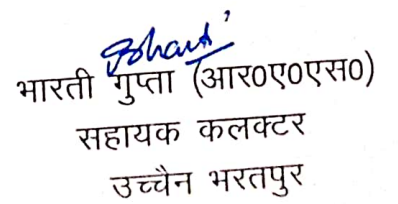 Bharti
भारती गुप्ता (आर०ए०एस०)
सहायक कलक्टर
उच्चैन भरतपुर